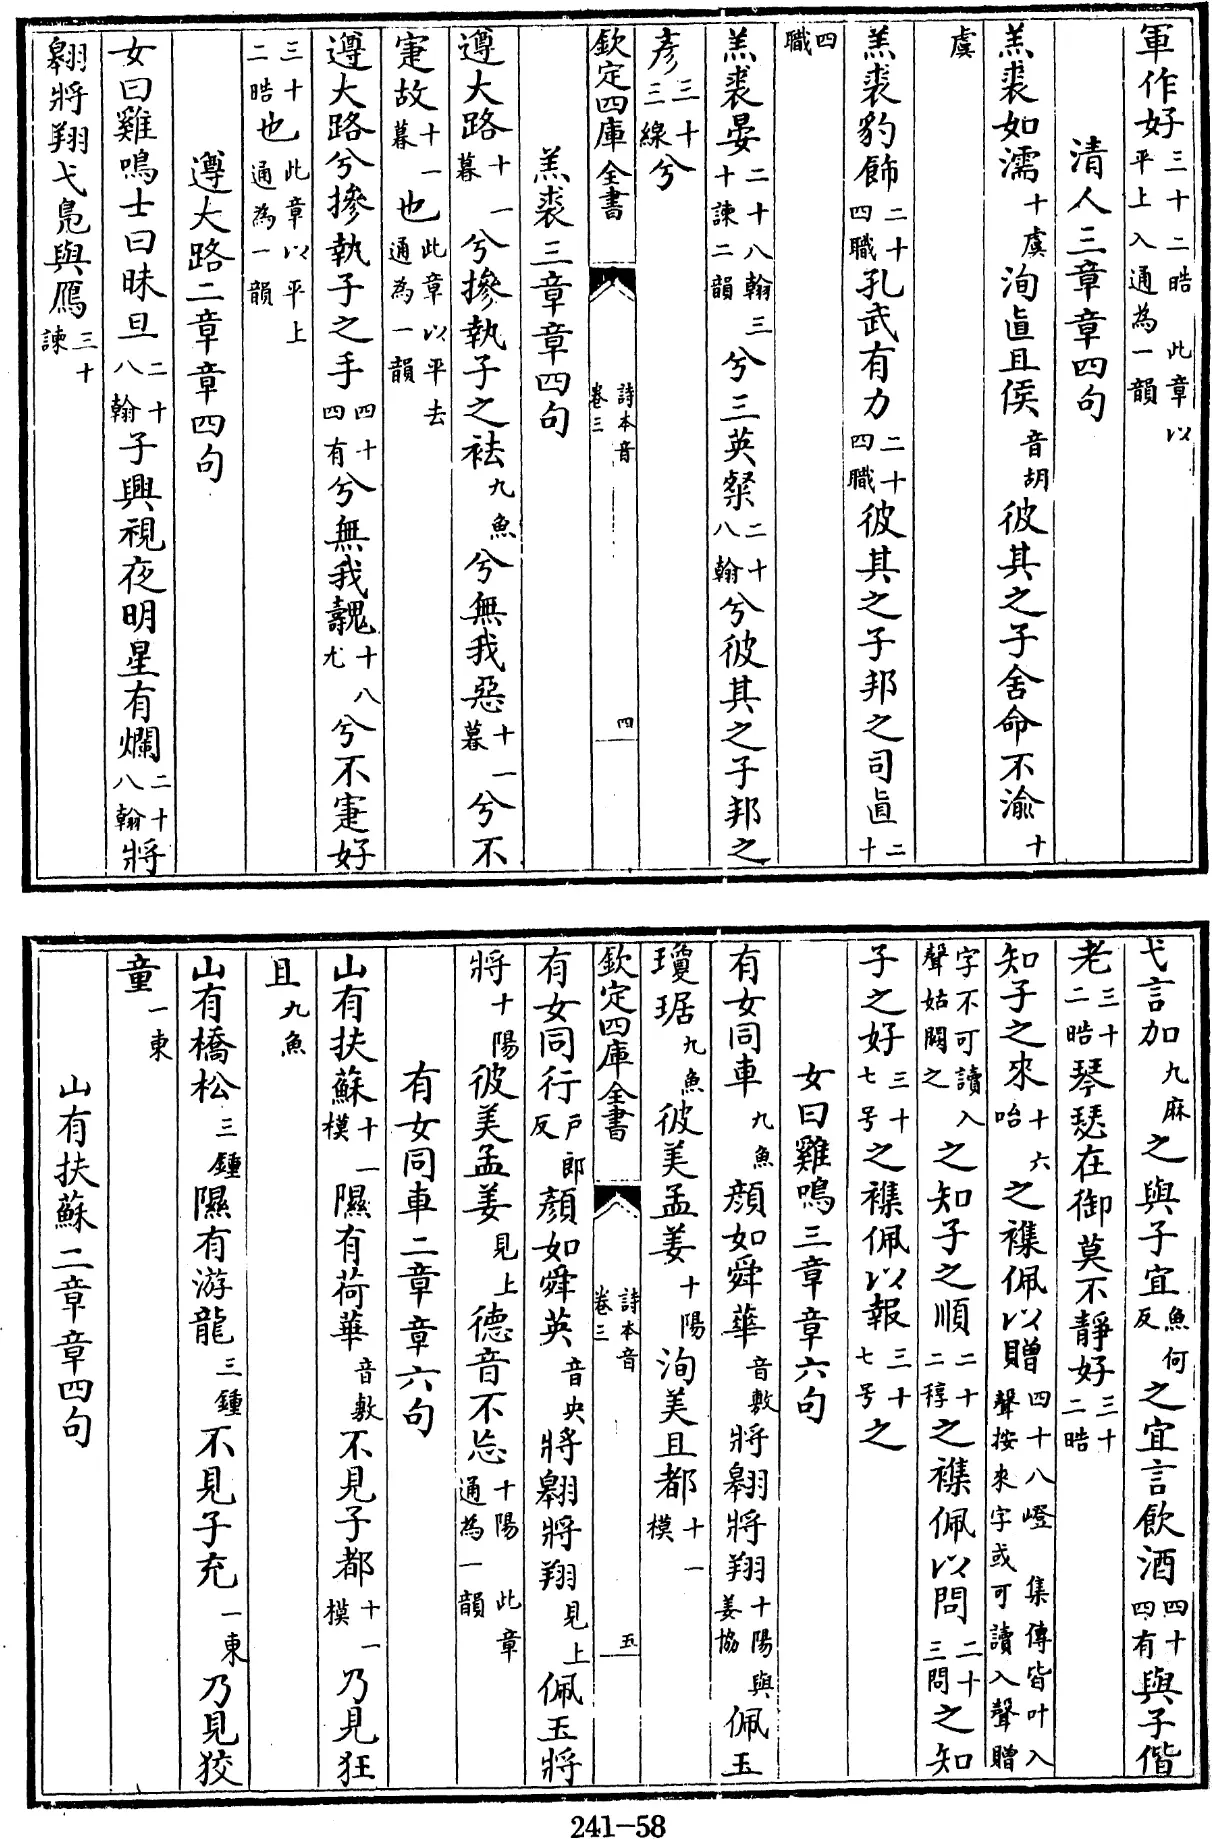 軍作好三十二晧此章以平上入通為一韻
清人三章章四句
羔裘如濡十虞洵直且侯音胡彼其之子舍命不渝十
虞
羔裘豹飾二十四職孔武有力二十四職彼其之子邦之司直二十
四職
羔裘晏二十八翰三十諫二韻兮三英粲二十八翰兮彼其之子邦之
彥三十三線兮
欽定四庫全書 詩本音卷三 四
羔裘三章章四句
遵大路十一暮兮摻執子之袪九魚兮無我惡十一暮兮不
寁故十一暮也此章以平去通為一韻
遵大路兮摻執子之手四十四有兮無我魗十八尤兮不寁好
三十二晧也此章以平上通為一韻
遵大路二章章四句
女曰雞鳴士曰昧旦二十八翰子興視夜明星有爛二十八翰將
翱將翔弋鳧與鴈三十諫
弋言加九麻之與子宜魚何反之宜言飲酒四十四有與子偕
老三十二晧琴瑟在御莫不靜好三十二晧
知子之來十六咍之襍佩以贈四十八嶝 集傳皆叶入聲按來字或可讀入聲贈
字不可讀入聲姑闕之之知子之順二十二稕之襍佩以問二十三問之知
子之好三十七号之襍佩以報三十七号之
女曰雞鳴三章章六句
有女同車九魚顏如舜華音敷將翱將翔十陽與姜協佩玉
瓊琚九魚彼美孟姜十陽洵美且都十一模
欽定四庫全書 詩本音卷三 五
有女同行戸郎反顏如舜英音央將翱將翔見上佩玉將
將十陽彼美孟姜見上德音不忘十陽此章通為一韻
有女同車二章章六句
山有扶蘇十一模隰有荷華音敷不見子都十一模乃見狂
且九魚
山有橋松三鍾隰有游龍三鍾不見子充一東乃見狡
童一東
山有扶蘇二章章四句
241-58